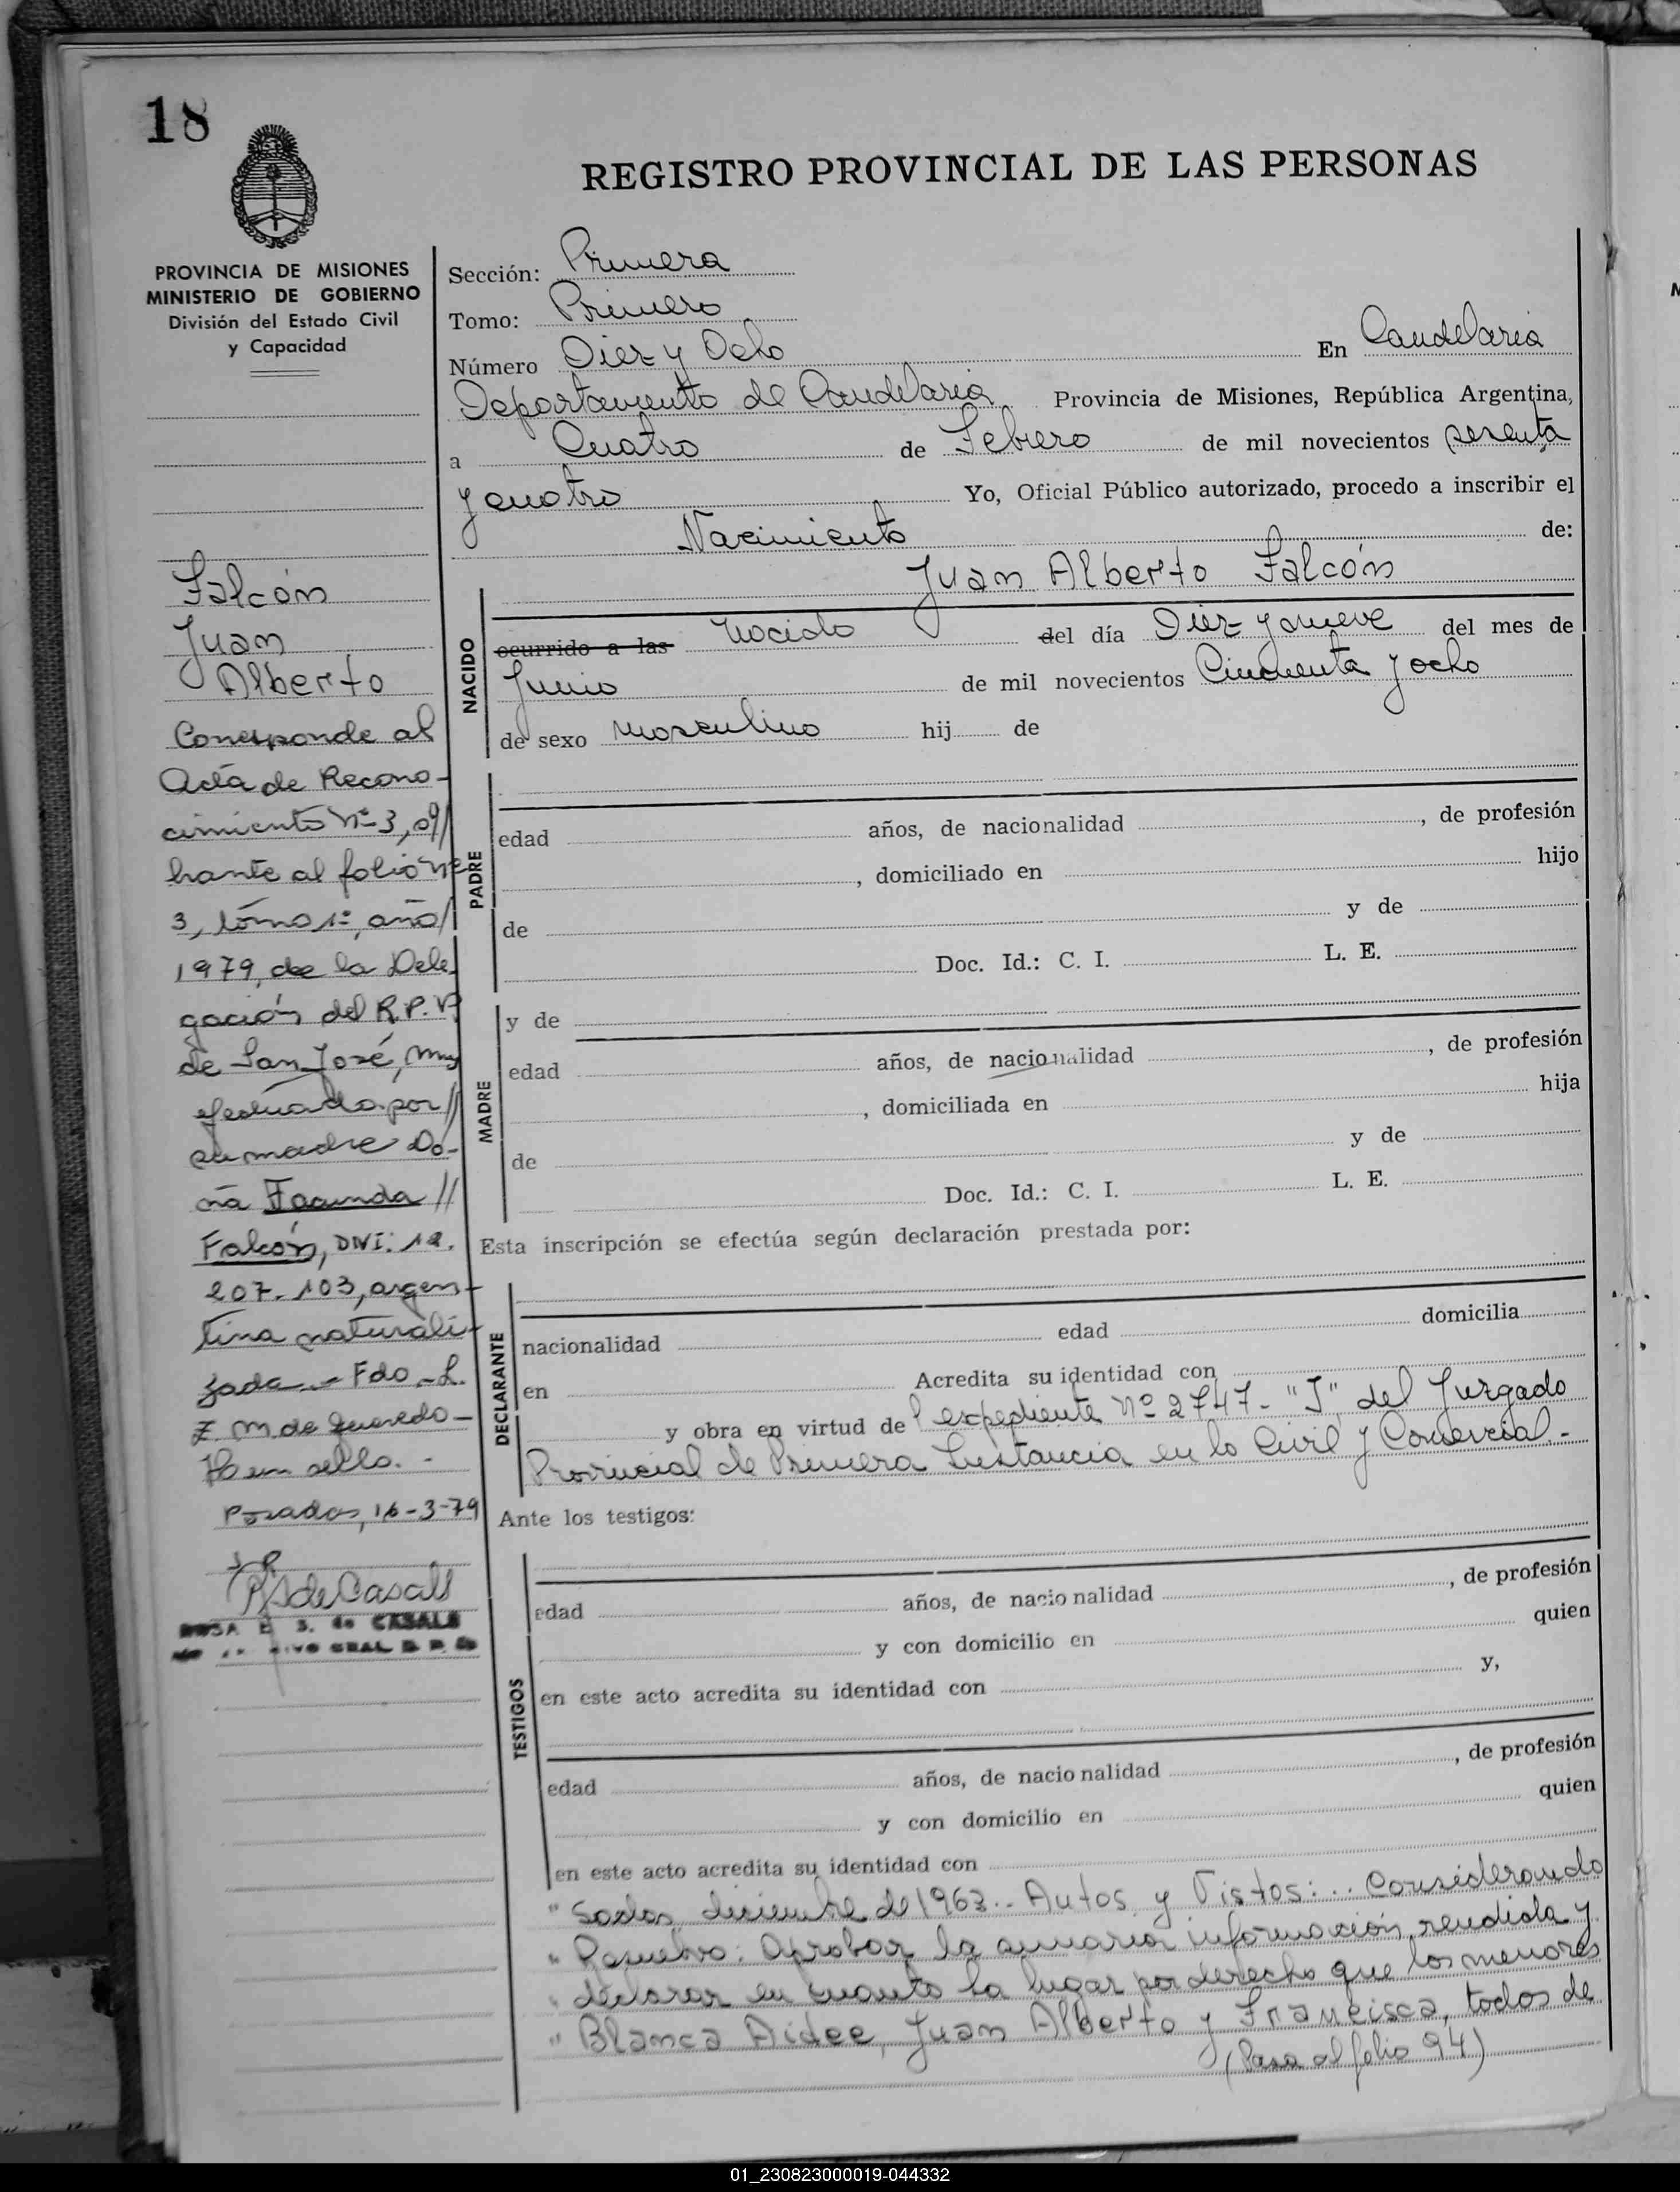 18
REGISTRO PROVINCIAL DE LAS PERSONAS
PROVINCIA DE MISIONES
MINISTERIO DE GOBIERNO
División del Estado Civil
y Capacidad
Falcón
Juan
Alberto
Corresponde al
Acta de Recono-
cimiento Nº 3, o//
brante al folio Nº
3, tomo 1º, año/
1979, de la Dele
gación del R.P.P.
de San José, Mnes
efectuado por //
su madre Do-
ña Facunda //
Falcón, DNI: 12.
207.103, argen-
tina naturali-
zada.- Fdo.- L.
Z. M. de Quevedo -
Hay un sello. -
Posadas, 16-3-79
RSdeCasals
ROSA E S. de CASALS
Sección: Primera
Tomo: Primero
Número Diez y Ocho En Candelaria
Departamento de Candelaria Provincia de Misiones, República Argentina,
a Cuatro de Febrero de mil novecientos sesenta
y cuatro Yo, Oficial Público autorizado, procedo a inscribir el
Nacimiento de:
Juan Alberto Falcón
NACIDO
ocurrido a las nacido del día Diez y nueve del mes de
Junio de mil novecientos Cincuenta y ocho
de sexo masculino hij de
PADRE
edad años, de nacionalidad , de profesión
, domiciliado en hijo
de y de
Doc. Id.: C. I. L. E.
MADRE
y de
edad años, de nacionalidad , de profesión
, domiciliada en hija
de y de
Doc. Id.: C. I. L. E.
Esta inscripción se efectúa según declaración prestada por:
DECLARANTE
nacionalidad edad domicilia
en Acredita su identidad con
y obra en virtud del expediente Nº 2747- "J" del Juzgado
Provincial de Primera Instancia en lo Civil y Comercial.-
Ante los testigos:
TESTIGOS
edad años, de nacionalidad , de profesión
y con domicilio en quien
en este acto acredita su identidad con y,
edad años, de nacionalidad , de profesión
y con domicilio en quien
en este acto acredita su identidad con
" Sadas, diciembre de 1963.. Autos y Vistos: .. Considerando
" Resuelvo: Aprobar la sumaria información rendida y
" declarar en cuanto ha lugar por derecho que los menores
" Blanca Aidee, Juan Alberto y Francisca, todos de
(Pasa al folio 94)
01_230823000019-044332